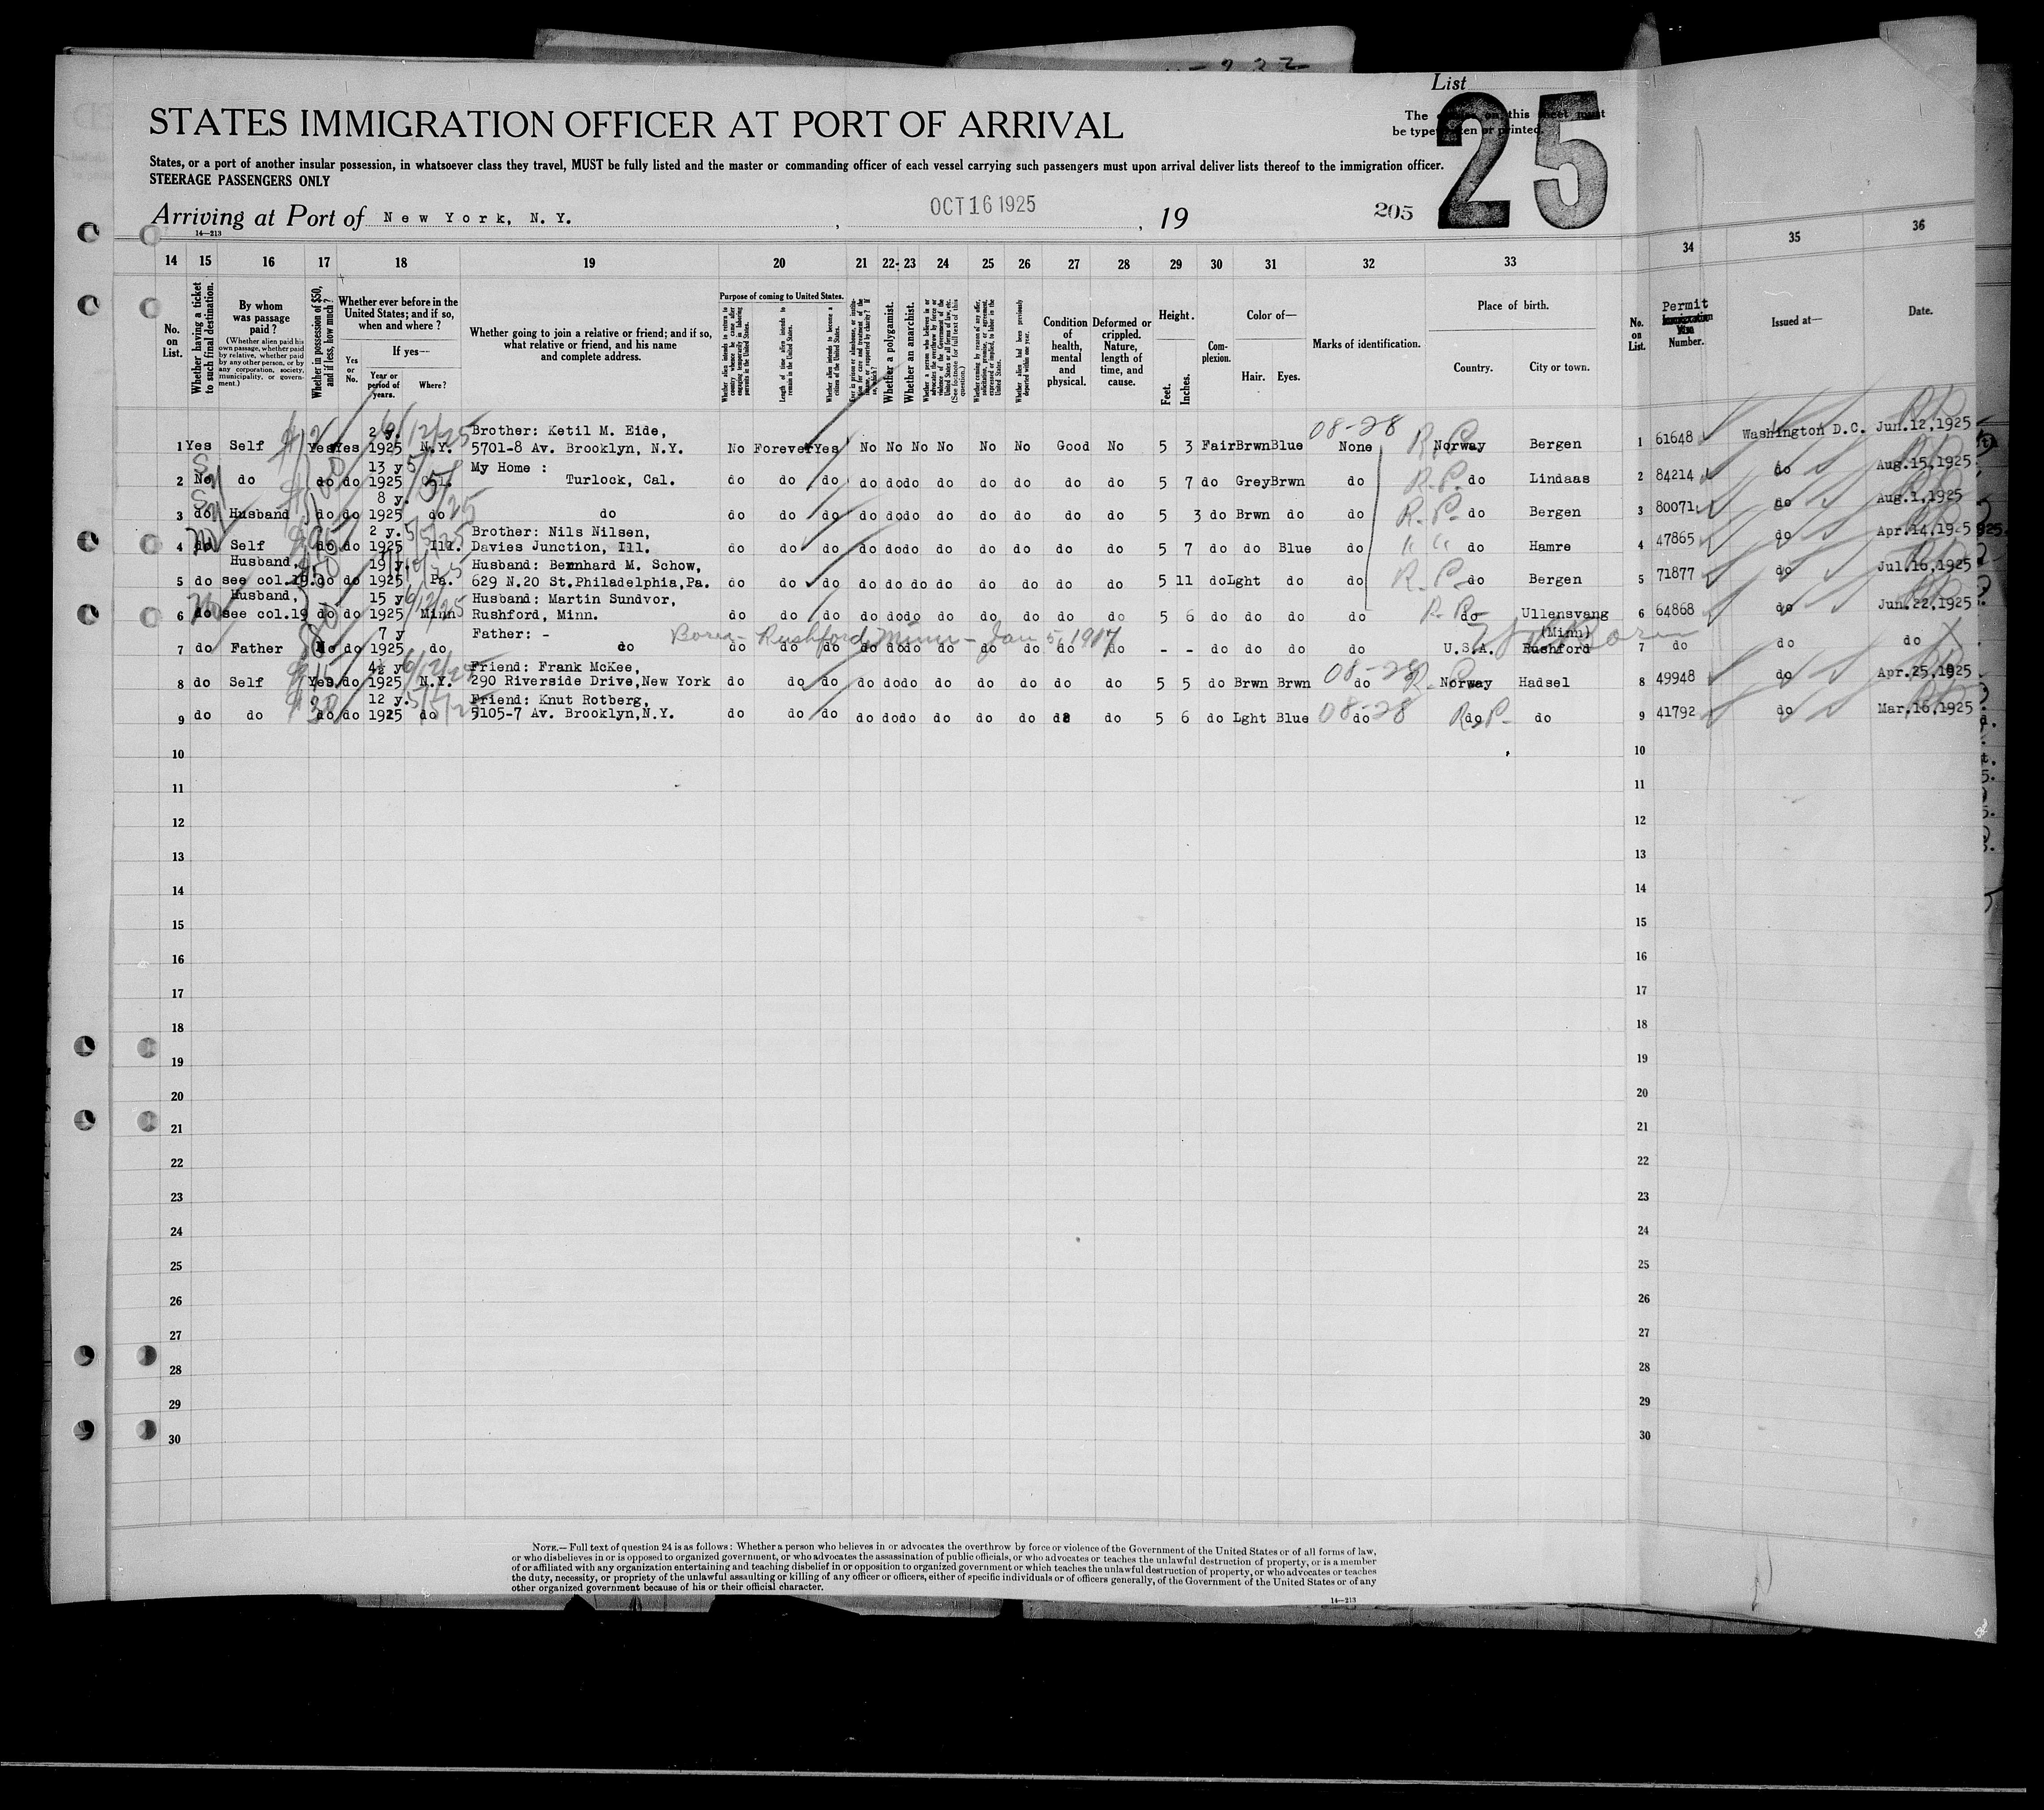 List
25
STATES IMMIGRATION OFFICER AT PORT OF ARRIVAL
The on this sheet must
be typewritten or printed.
States, or a port of another insular possession, in whatsoever class they travel, MUST be fully listed and the master or commanding officer of each vessel carrying such passengers must upon arrival deliver lists thereof to the immigration officer.
STEERAGE PASSENGERS ONLY
Arriving at Port of New York, N. Y. , OCT 16 1925 , 19 205
14—213
14 15 16 17 18 19 20 21 22 23 24 25 26 27 28 29 30 31 32 33 34 35 36
No. on List.
Whether having a ticket to such final destination.
By whom was passage paid?
(Whether alien paid his own passage, whether paid by relative, whether paid by any other person, or by any corporation, society, municipality, or government.)
Whether in possession of $50, and if less, how much?
Whether ever before in the United States; and if so, when and where?
Yes or No.
If yes—
Year or period of years.
Where?
Whether going to join a relative or friend; and if so, what relative or friend, and his name and complete address.
Purpose of coming to United States.
Length of time alien intends to remain in the United States.
Whether alien intends to become a citizen of the United States.
Whether a polygamist.
Whether an anarchist.
Whether alien had been previously deported within one year.
Condition of health, mental and physical.
Deformed or crippled. Nature, length of time, and cause.
Height.
Feet.
Inches.
Complexion.
Color of—
Hair.
Eyes.
Marks of identification.
Place of birth.
Country.
City or town.
No. on List.
Permit
Number.
Issued at—
Date.
2 y. 6/12/25 Brother: Ketil M. Eide, 08-28
1 Yes Self Yes Yes 1925 N.Y. 5701-8 Av. Brooklyn, N.Y. No Forever Yes No No No No No No Good No 5 3 Fair Brwn Blue None R.P. Norway Bergen 1 61648 Washington D.C. Jun.12,1925
13 y My Home :
2 No do do do 1925 Cal. Turlock, Cal. do do do do do do do do do do do 5 7 do Grey Brwn do R.P. do Lindaas 2 84214 do Aug.15,1925
8 y.
3 do Husband do do 1925 do do do do do do do do do do do do do 5 3 do Brwn do do R.P. do Bergen 3 80071 do Aug.1,1925
2 y. Brother: Nils Nilsen,
4 do Self do do 1925 Ill. Davies Junction, Ill. do do do do do do do do do do do 5 7 do do Blue do " " do Hamre 4 47865 do Apr.14,19-5
Husband, 19 y. Husband: Bernhard M. Schow,
5 do see col.19. do do 1925 Pa. 629 N.20 St.Philadelphia,Pa. do do do do do do do do do do do 5 11 do Lght do do R.P. do Bergen 5 71877 do Jul.16,1925
Husband, 15 y 6/12/25 Husband: Martin Sundvor,
6 do see col.19 do do 1925 Minn Rushford, Minn. do do do do do do do do do do do 5 6 do do do do R.P. do Ullensvang 6 64868 do Jun.22,1925
7 y Father: - Born - Rushford, Minn - Jan 5, 1917 (Minn)
7 do Father No do 1925 do do do do do do do do do do do do do - - do do do do U.S.A. Rushford 7 do do do
4½ y 6/12/25 Friend: Frank McKee, 08-28
8 do Self Yes do 1925 N.Y. 290 Riverside Drive,New York do do do do do do do do do do do 5 5 do Brwn Brwn do R.P. Norway Hadsel 8 49948 do Apr.25,1925
12 y. Friend: Knut Rotberg,
9 do do do do 1925 do 5105-7 Av. Brooklyn,N.Y. do do do do do do do do do do do 5 6 do Lght Blue 08-28 do do R.P. do 9 41792 do Mar.16,1925
10 10
11 11
12 12
13 13
14 14
15 15
16 16
17 17
18 18
19 19
20 20
21 21
22 22
23 23
24 24
25 25
26 26
27 27
28 28
29 29
30 30
NOTE.—Full text of question 24 is as follows: Whether a person who believes in or advocates the overthrow by force or violence of the Government of the United States or of all forms of law,
or who disbelieves in or is opposed to organized government, or who advocates the assassination of public officials, or who advocates or teaches the unlawful destruction of property, or is a member
of or affiliated with any organization entertaining and teaching disbelief in or opposition to organized government or which teaches the unlawful destruction of property, or who advocates or teaches
the duty, necessity, or propriety of the unlawful assaulting or killing of any officer or officers, either of specific individuals or of officers generally, of the Government of the United States or of any
other organized government because of his or their official character.
14—213